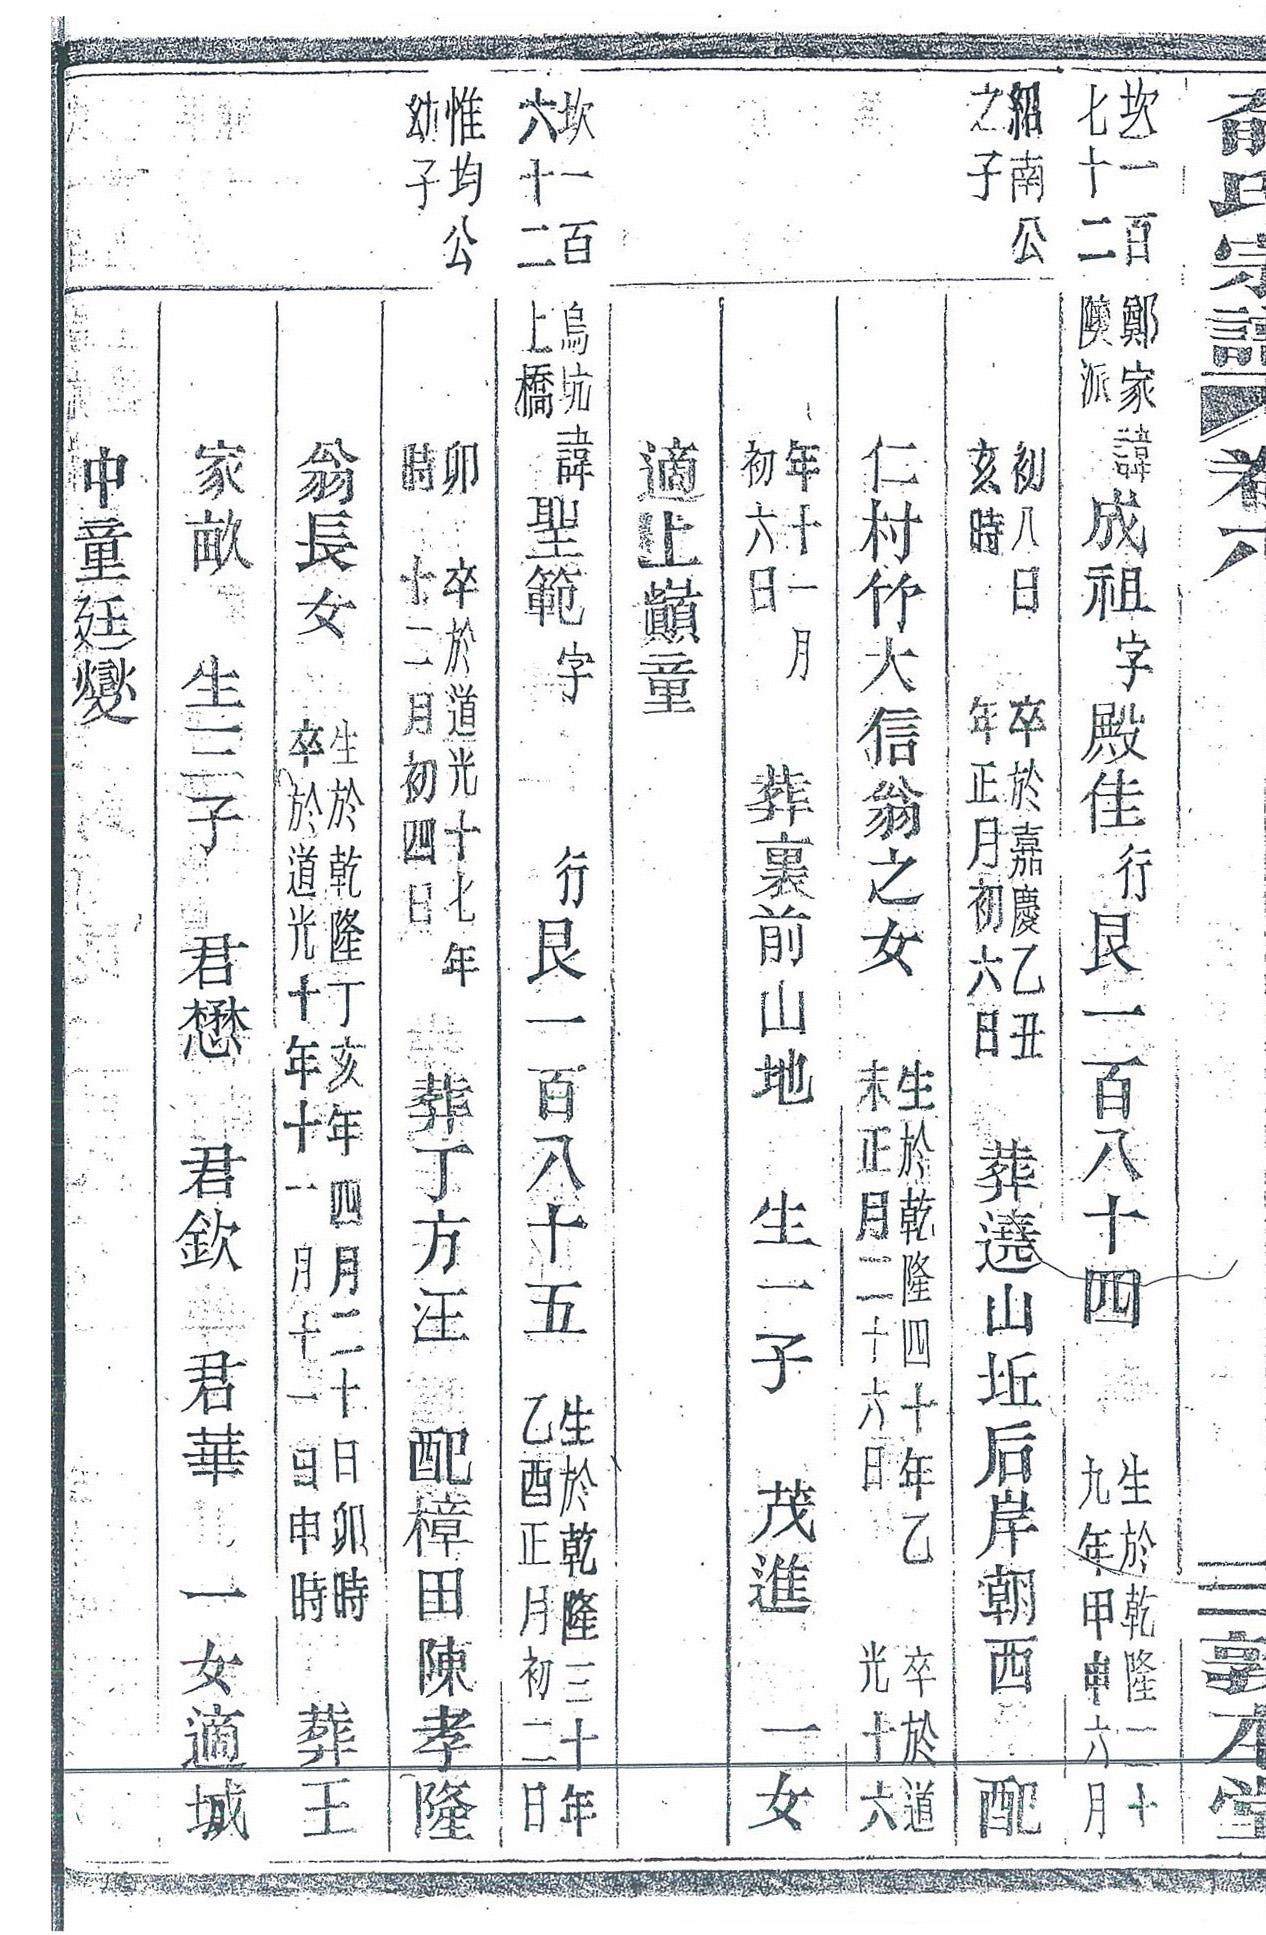 俞氏宗譜 卷六 二 敦本堂
坎一百
七十二
鄭家
隩派
諱成祖字殿佳行艮一百八十四
生於乾隆二十
九年甲申六月
紹南公
之子
初八日
亥時
卒於嘉慶乙丑
年正月初六日
葬遶山坵后岸朝西 配
仁村竹大信翁之女
生於乾隆四十年乙
未正月二十六日
卒於道
光十六
年十一月
初六日
葬裏前山地 生一子 茂進 一女
適上巔童
坎一百
六十二
烏坑
上橋
諱聖範字 行艮一百八十五
生於乾隆三十年
乙酉正月初二日
惟均公
幼子
卯
時
卒於道光十七年
十二月初四日
葬丁方汪 配樟田陳孝隆
翁長女
生於乾隆丁亥年四月二十日卯時
卒於道光十年十一月十一日申時
葬王
家畝 生三子 君懋 君欽 君華 一女適城
中童廷變